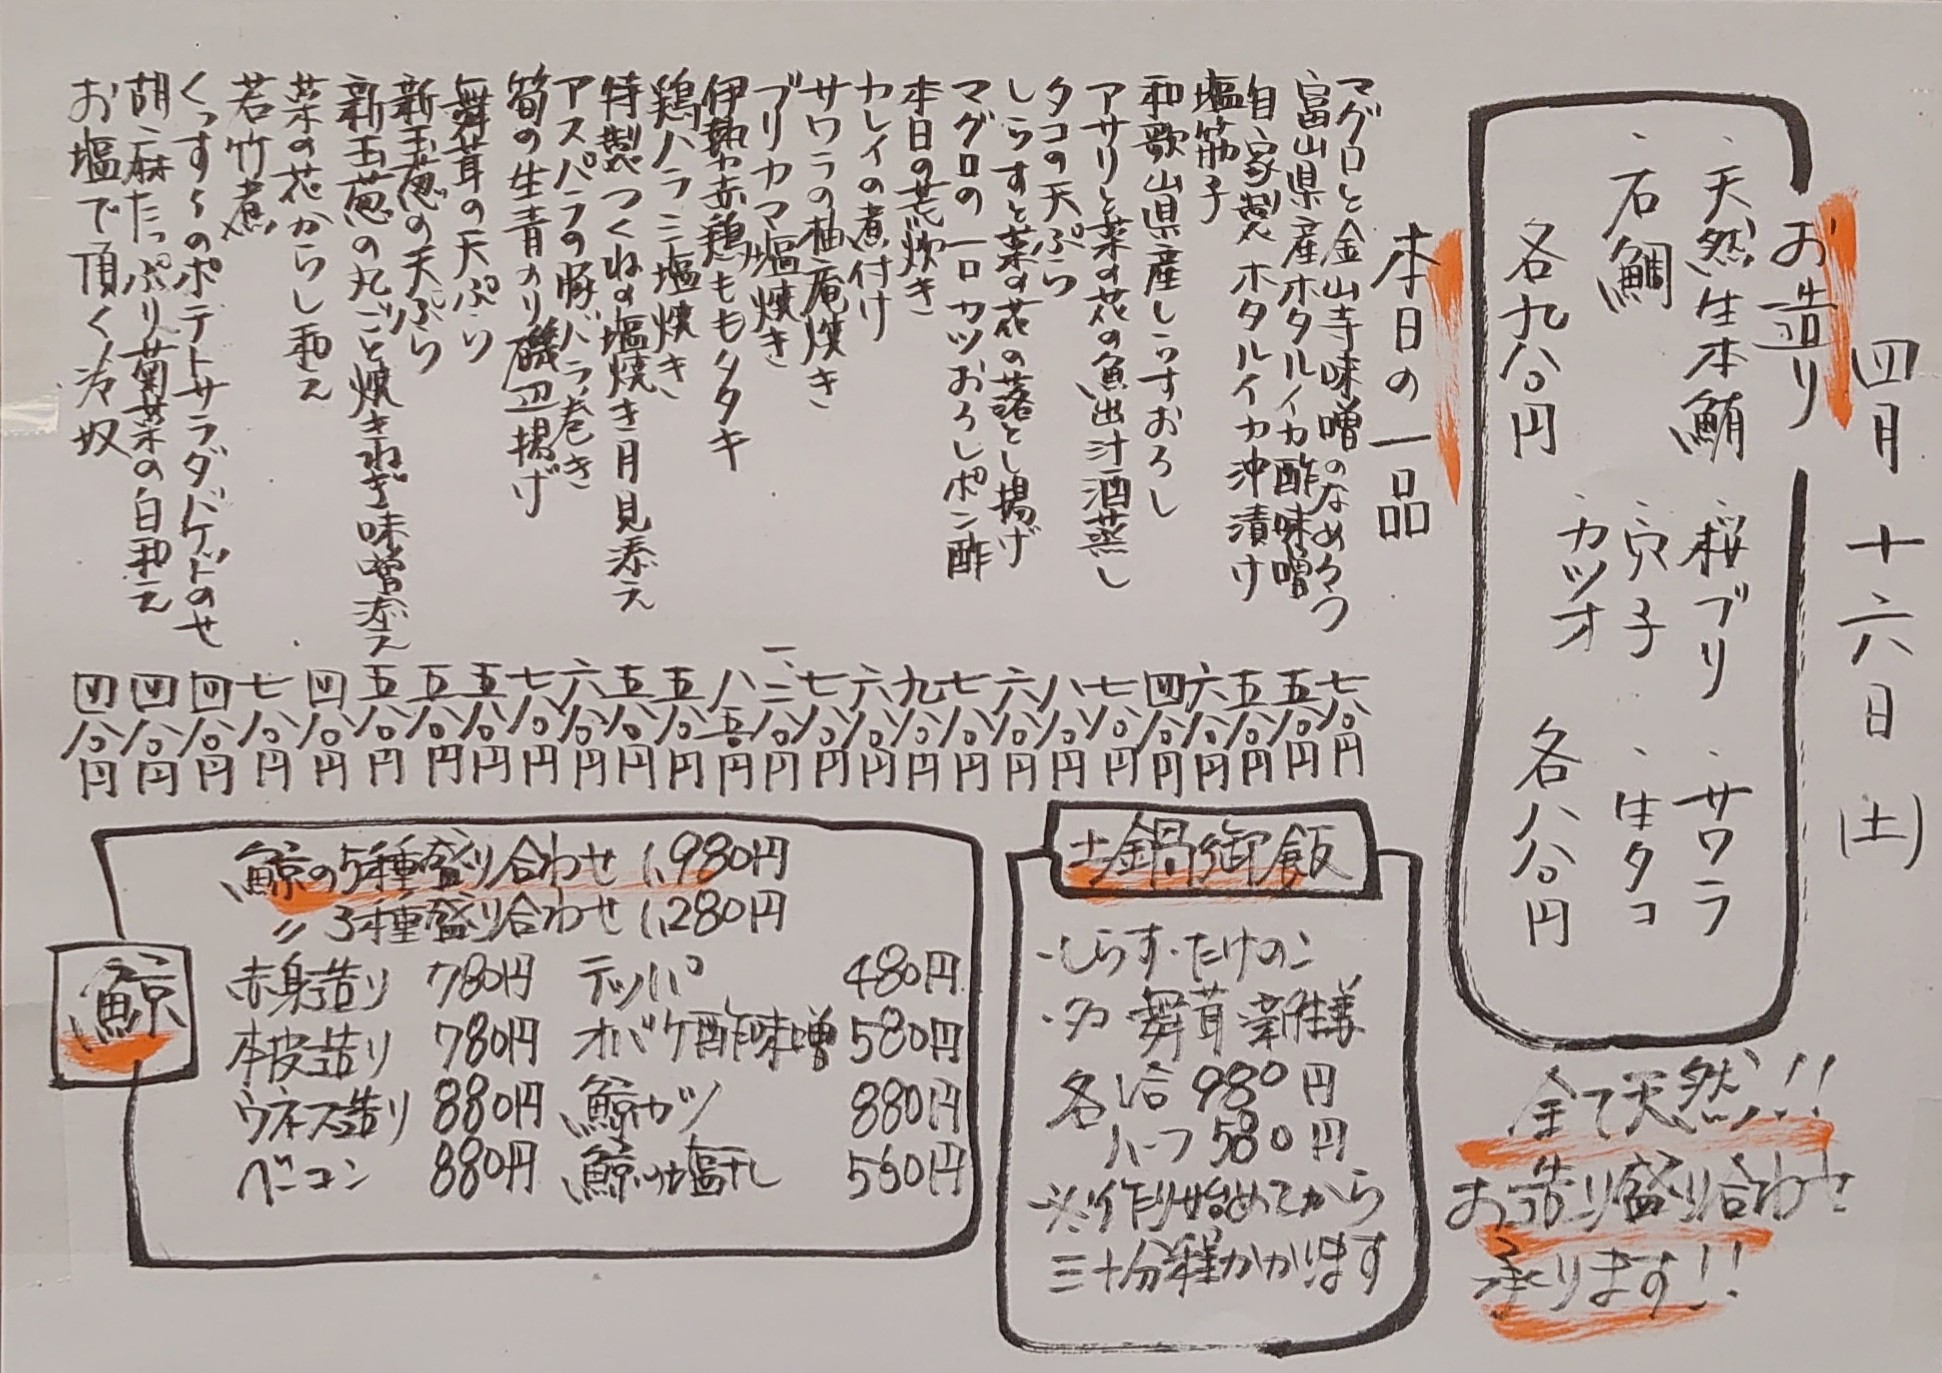 四月十六日(土)
お造り
・天然生本鮪 ・桜ブリ ・サワラ
・石鯛 ・穴子 ・生タコ
・カツオ
各九八〇円 各八八〇円
全て天然!!
お造り盛り合わせ
承ります!!
本日の一品
マグロと金山寺味噌のなめろう 七八〇円
富山県産ホタルイカ酢味噌 五八〇円
自家製ホタルイカ沖漬け 五八〇円
塩筋子 六八〇円
和歌山県産しらすおろし 四八〇円
アサリと菜の花の魚出汁酒蒸し 七八〇円
タコの天ぷら 八八〇円
しらすと菜の花の落とし揚げ 六八〇円
マグロの一口カツおろしポン酢 七八〇円
本日の荒炊き 九八〇円
カレイの煮付け 六八〇円
サワラの柚庵焼き 七八〇円
ブリカマ塩焼き 一、二八〇円
伊勢赤鶏ももタタキ 八五〇円
鶏ハラミ塩焼き 五八〇円
特製つくねの塩焼き月見添え 五八〇円
アスパラの豚バラ巻き 六八〇円
筍の生青のり磯辺揚げ 七八〇円
舞茸の天ぷら 五八〇円
新玉葱の天ぷら 五八〇円
新玉葱の丸ごと焼きねぎ味噌添え 五八〇円
菜の花からし和え 四八〇円
若竹煮 七八〇円
くっすくのポテトサラダバゲットのせ 四八〇円
胡麻たっぷり菊菜の白和え 四八〇円
お塩で頂く冷奴 四八〇円
土鍋御飯
・しらす・たけのこ
・タコ 舞茸 新生姜
各1合 980円
ハーフ 580円
※作り始めてから
三十分程かかります
鯨
鯨の5種盛り合わせ 1,980円
〃 3種盛り合わせ 1,280円
赤身造り 780円 テッパ 480円
本皮造り 780円 オバケ酢味噌 580円
ウネス造り 880円 鯨カツ 880円
ベーコン 880円 鯨 塩干し 560円